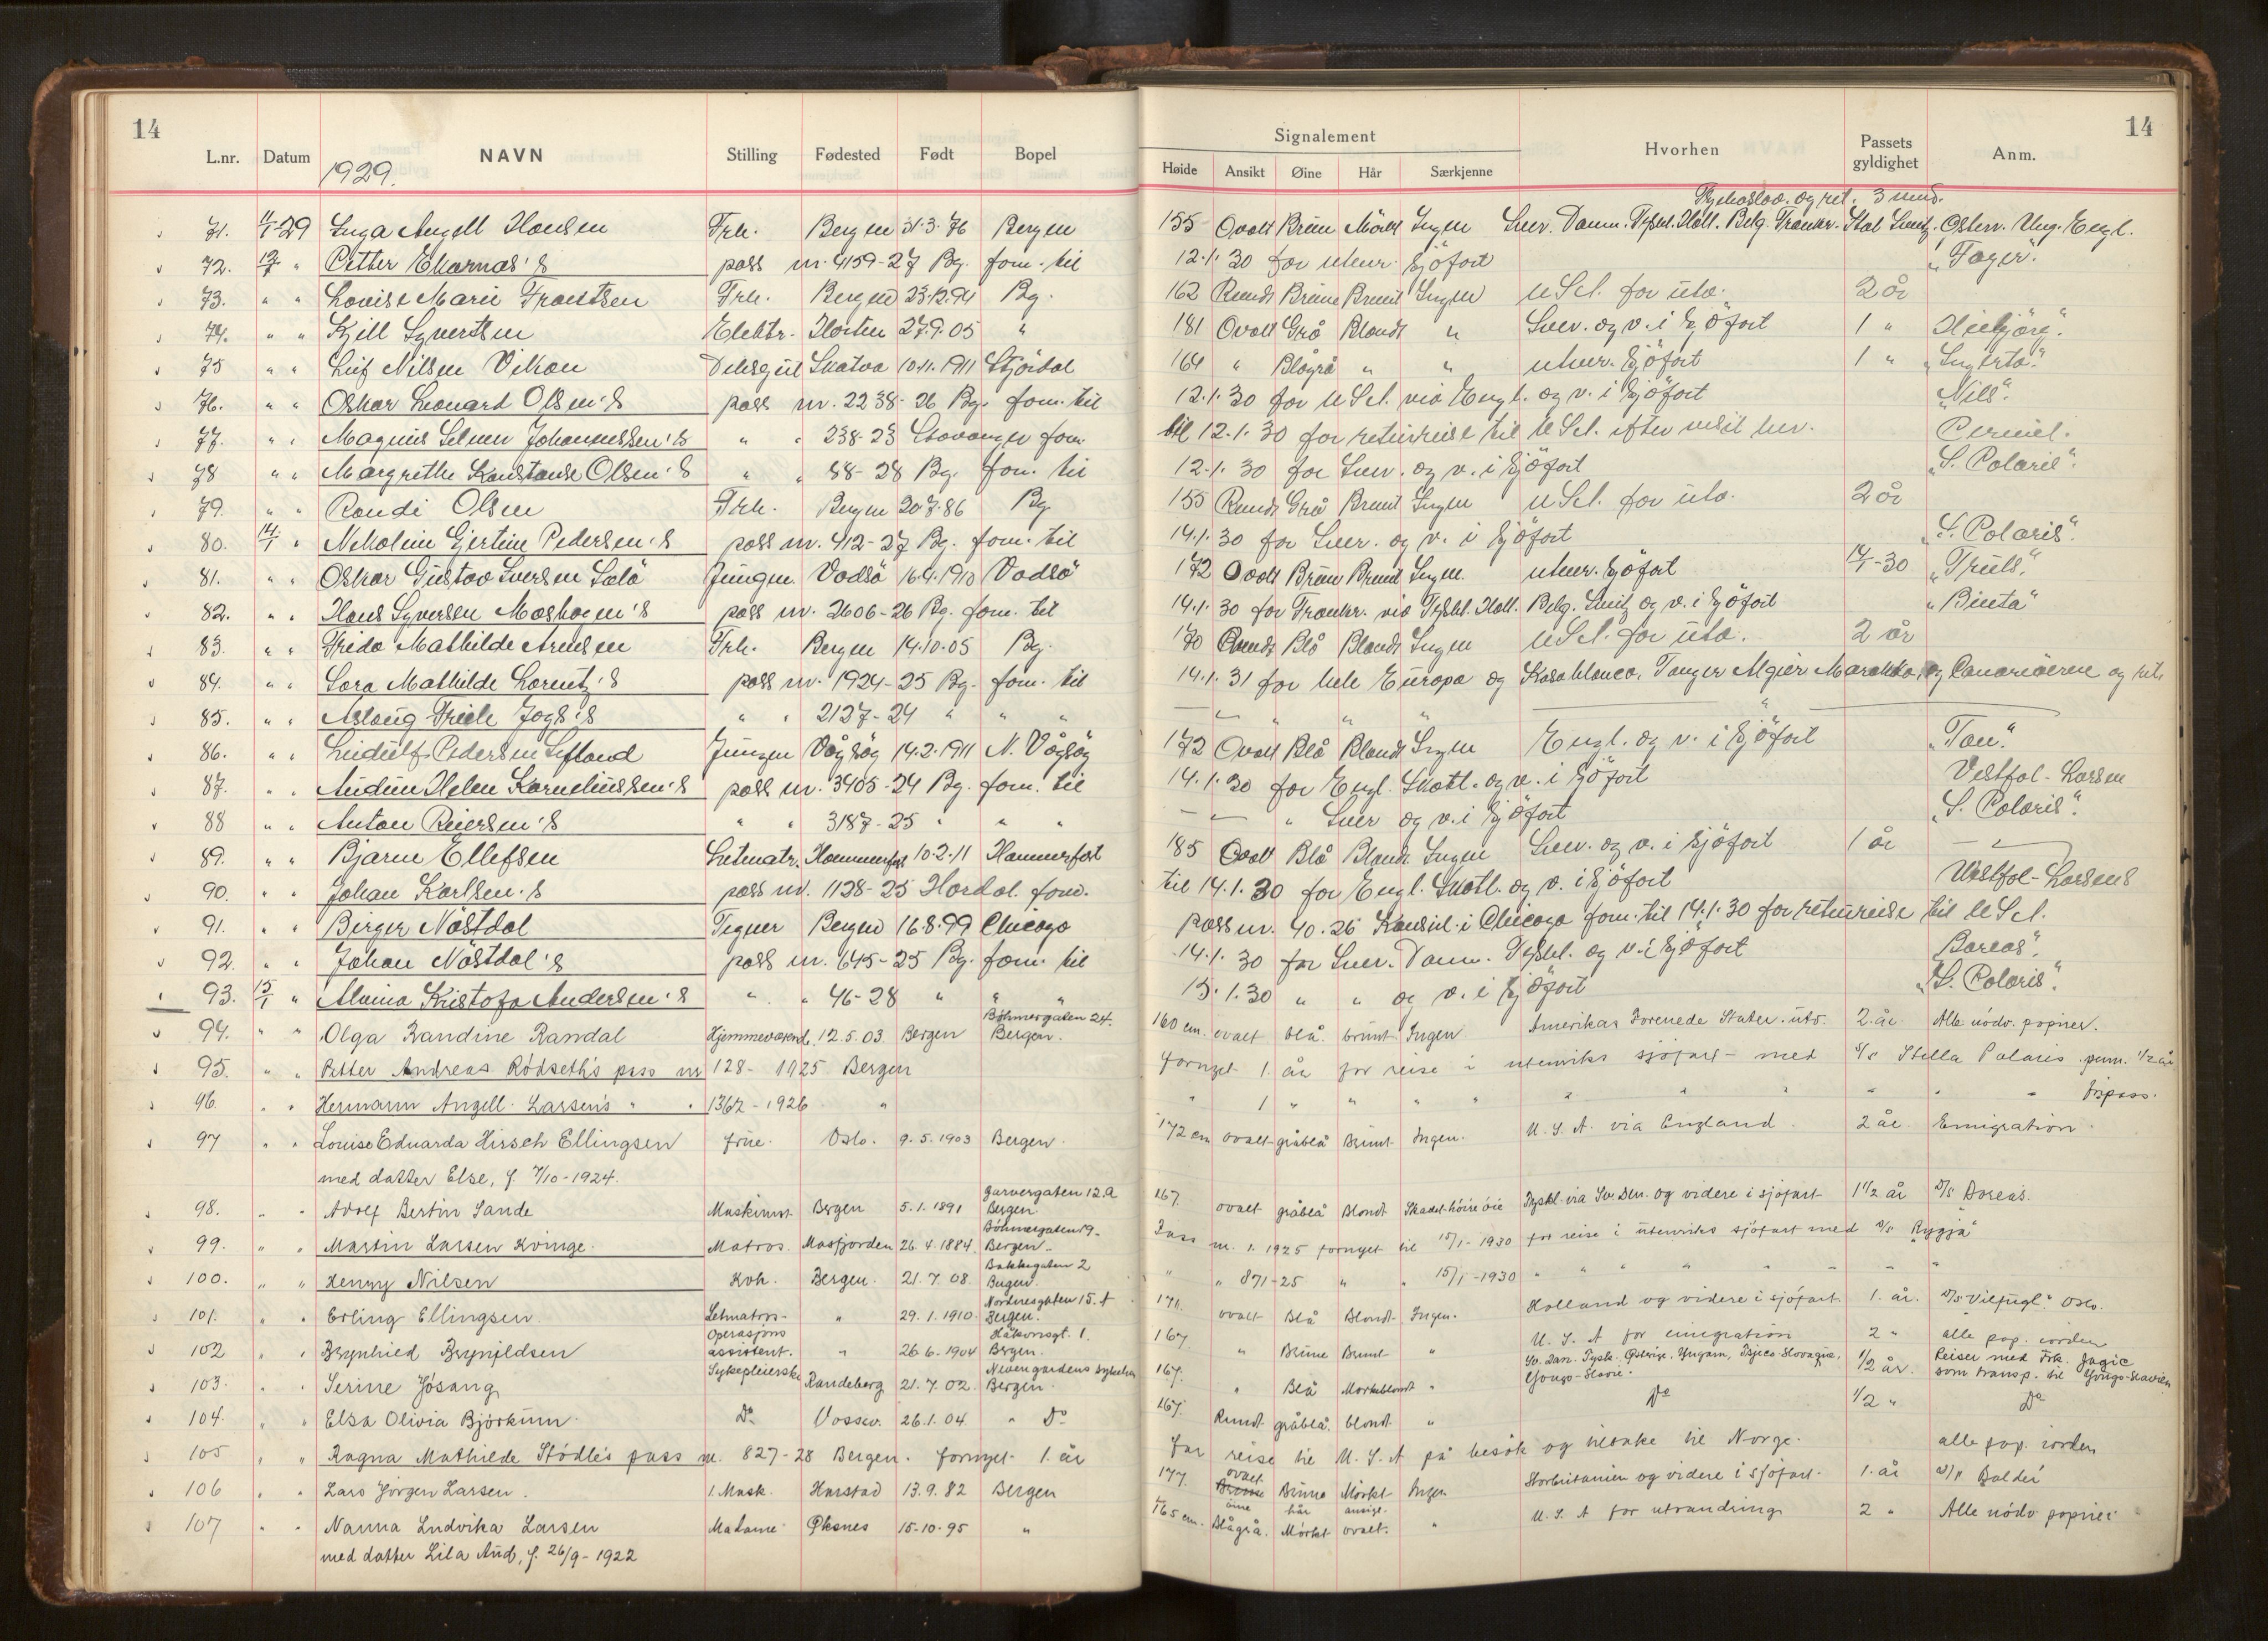 14
L.nr. Datum NAVN Stilling Fødested Født Bopel
1929.
Signalement
Høide Ansikt Øine Hår Særkjenne Hvorhen Passets gyldighet Anm.
14
71. 11/1-29 Inga Angell Hansen Frk. Bergen 31.3.76 Bergen 155 Ovalt Brune Mörkt Ingen Sver. Danm. Tyskl. Holl. Belg. Frankr. Ital. Sveitz. Österr. Ung. Engl. Tsjekoslov. og ret. 3 mnd.
72. 12/1 " Petter Ekornæs's pass nr. 4159-27 Bg. forn. til 12.1.30 for utenr. sjöfart
73. " " Lovise Marie Troedsen Frk. Bergen 23.12.94 Bg. 162 Rundt Brune Brunt Ingen U St. for utv. 2 år
74. " " Kjell Syvertsen Elektr. Horten 27.9.05 " 181 Ovalt Grå Blondt " Sver. og v. i sjöfart 1 "
75 " " Leif Nilsen Vikan Deksgut Skatva 10.11.1911 Stjördal 164 " Blågrå " " utenr. sjöfart 1 " "Ingerto".
76. " " Oskar Leonard Olsen's pass nr. 2238-26 Bg. forn. til 12.1.30 for U St. via Engl. og v. i sjöfart "Nils".
77. " " Magnus Selmer Johannessen's " " 238-23 Stavanger forn. til 12.1.30 for returreise til U St. efter visit her.
78 " " Margrethe Konstanse Olsen's " " 88-28 Bg. forn. til 12.1.30 for Sver. og v. i sjöfart "S. Polaris".
79. " " Randi Olsen Frk. Bergen 20.7.86 Bg. 155 Rundt Grå Brunt Ingen U St. for utv. 2 år
80. 14/1 " Nikoline Gjertine Pedersen's pass nr. 412-27 Bg. forn. til 14.1.30 for Sver. og v. i sjöfart "S. Polaris".
81. " " Oskar Gustav Iversen Sælö Jungm. Vadsö 16.4.1910 Vadsö 172 Ovalt Brune Brunt Ingen utenr. sjöfart 14/1-30 "Truls".
82. " " Hans Syversen Moshagen's pass nr. 2606-26 Bg. forn. til 14.1.30 for Frankr. via Tyskl. Holl. Belg. Sveitz og v. i sjöfart "Binta"
83. " " Frida Mathilde Arnesen Frk. Bergen 14.10.05 Bg. 170 Rundt Blå Blondt Ingen U St. for utv. 2 år
84. " " Sara Mathilde Lorentz's pass nr. 1924-25 Bg. forn. til 14.1.31 for hele Europa og Kasablanca, Tanger Algier Marokko og Canariöerne og ret.
85. " " Aslaug Friele Joys's " " 2127-24 " " "
86. " " Lindulf Pedersen Sefland Jungm Vågsöy 14.2.1911 N. Vågsöy 172 Ovalt Blå Blondt Ingen Engl. og v. i sjöfart
87. " " Audun Helen Kornelinssen's pass nr. 3405-24 Bg. forn. til 14.1.30 for Engl. Skotl. og v. i sjöfart Vestfal-Larsen
88 " " Anton Reiersen's " " 3187-25 " " " " Sver og v. i sjöfart "S. Polaris".
89. " " Bjarne Ellefsen Letmatr. Hammerfest 10.2.11 Hammerfest 185 Ovalt Blå Blondt Ingen Sver. og v. i sjöfart 1 år
90. " " Johan Karlsen's pass nr. 1128-25 Hordal. forn. til 14.1.30 for Engl. Skotl. og v. i sjöfart Vestfal-Larsens
91. " " Birger Nöstdal Tegner Bergen 16.8.99 Chicago pass nr. 40.26 Konsul. i Chicago forn. til 14.1.30 for returreise til U St.
92. " " Johan Nöstdal's pass nr. 645-25 Bg. forn. til 14.1.30 for Sver. Danm. Tyskl. og v. i sjöfart "Boreas".
93. 15/1 " Alvina Kristofa Andersen's " " 46-28 " " " 15.1.30 " " og v. i sjöfart "S. Polaris".
94. " " Olga Randine Randal Hjemmeværende 12.5.03 Bergen Böhmergaten 24. Bergen. 160 cm. ovalt blå. brunt Ingen. Amerikas Forenede Stater. utv. 2. år. Alle nödv. papirer.
95. " " Petter Andreas Rödseth's pass nr 128-1925 Bergen fornyet 1. år for reise i utenriks sjöfart med S/S Stella Polaris
96. " " Hermann Angell-Larsen's " " 1367-1926 " " 1 " " " "
97 " " Louise Eduarda Hirsch Ellingsen frue. Oslo. 9.5.1903 Bergen. 172 cm ovalt gråblå Brunt Ingen. U.S.A. via England. 2 år. Emigration.
med datter Else, f. 7/10-1924.
98. " " Adolf Bertin Sande Maskinist Bergen 5.1.1891 Garvergaten 12.a Bergen. 167. ovalt gråblå Blondt Skadet höire öie Tyskl. via Sv. Dan. og videre i sjöfart 1 1/2 år D/S Boreas.
99. " " Martin Larsen Kvinge. Matros. Masfjorden 26.4.1884. Böhmergaten 19. Bergen. Pass nr. 1.1925 fornyet til 15/1-1930 for reise i utenriks sjöfart med D/S "Ryggja"
100. " " Henny Nilsen Kok. Bergen. 21.7.08. Bakkegaten 2 Bergen. " " 871-25 " " 15/1-1930 " " " " " "
101. " " Erling Ellingsen. Letmatros " 29.1.1910. Nordnesgaten 15.A Bergen. 171. ovalt Blå Blondt Ingen. Holland og videre i sjöfart. 1. år. D/S "Vilfugl". Oslo.
102 " " Brynhild Brynjldsen Operasjons assistent. " 26.6.1904 Håkonsgt. 1. Bergen. 167 " Brune Brunt " U.S.A for emigration 2 " alle pap. iorden
103. " " Serine Jösang Sykepleierske Randeberg 21.7.02. Nevengårdens sykehus Bergen. 167. " Blå Mörkeblondt " Sv. Dan. Tyskl. Østerige. Ungarn, Tsjeco-Slovagie, Yougo-Slavie. 1/2 år. Reiser med Frk. Jagic som transp. til Yougo-Slavien
104. " " Elsa Olivia Björkum. Do Vossev. 26.1.04. " Do 167. Rundt gråblå. blondt " Do 1/2 " Do
105 " " Ragna Mathilde Stödle's pass nr. 827-28 Bergen. fornyet 1. år for reise til U.S.A på besök og tilbake til Norge. alle pap. iorden
106 " " Lars Jörgen Larsen. 1. Mask. Harstad 13.9.82 Bergen 177. ovalt Brune Mörkt Ingen Storbritanien og videre i sjöfart. 1. år D/S Balder
107 " " Nanna Ludvika Larsen Madame Øksnes 15-10-95 " 165 cm. öine Blågrå. hår Mörkt ansigt. ovalt. " U.S.A for utvandring 2 " Alle nödv papirer
med datter Lila Aud, f. 26/9-1922